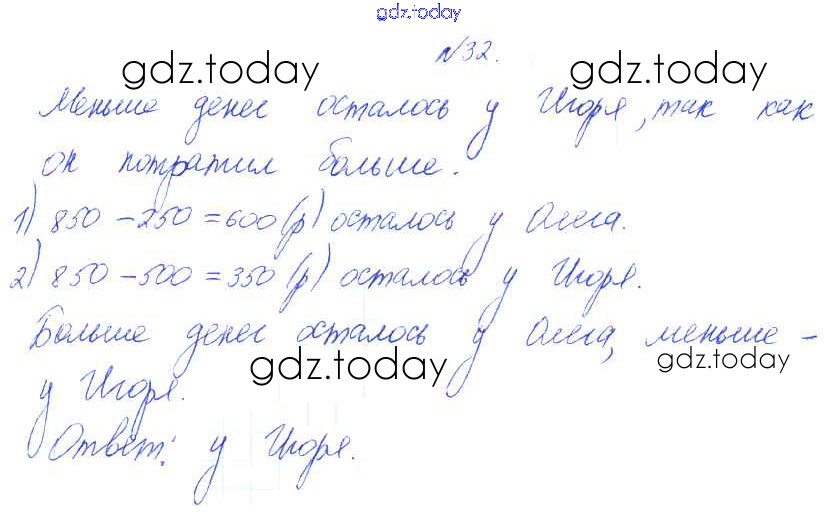 gdz.today
№32.
gdz.today gdz.today
Меньше денег осталось у Игоря, так как
он потратил больше.
1) 850 - 250 = 600 (р) осталось у Олега.
2) 850 - 500 = 350 (р) осталось у Игоря.
Больше денег осталось у Олега, меньше -
gdz.today gdz.today
у Игоря.
Ответ: у Игоря.